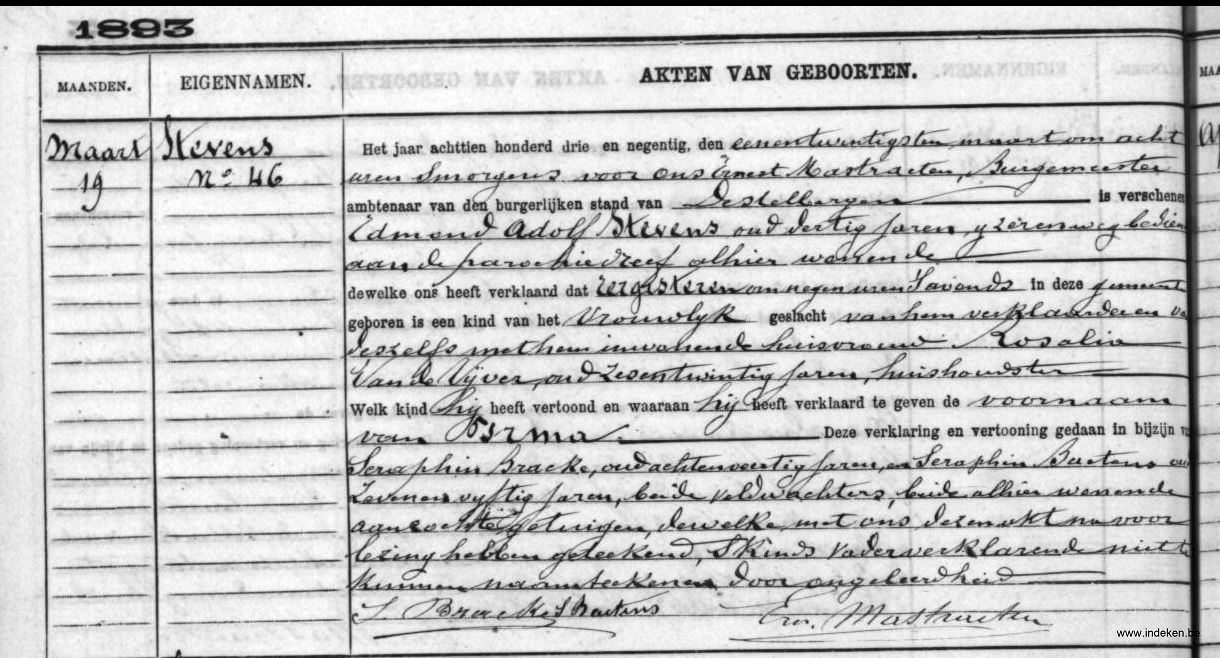 1893
MAANDEN. EIGENNAMEN. AKTEN VAN GEBOORTEN. MAA
Maart Stevens Het jaar achttien honderd drie en negentig, den eenentwintigsten maart om acht
19 No 46 uren Smorgens voor ons Ernest Mastraeten, Burgemeester
ambtenaar van den burgerlijken stand van Destelbergen is verschenen
Edmond Adolf Stevens oud dertig jaren, yzerenweg bedien
aan de parochiedreef alhier wonende
dewelke ons heeft verklaard dat eergisteren om negen uren Savonds in deze gemeente
geboren is een kind van het Vrouwlyk geslacht van hem verklaarder en va
deszelfs met hem inwonende huisvrouw Rosalia
Van de Vijver, oud zesentwintig jaren, huishoudster
Welk kind hij heeft vertoond en waaraan hij heeft verklaard te geven de voornaam
van Irma Deze verklaring en vertooning gedaan in bijzijn v
Seraphin Bracke, oud achtenveertig jaren, en Seraphin Baetens ou
zevenenvyftig jaren, beide veldwachters, beide alhier wonende
aanzochte getuigen, dewelke, met ons dezen akt na voor
lezing hebben geteekend, Skinds vader verklarende niet te
kunnen naamteekenen door ongeleerdheid
S. Bracke S Baetens Ern. Mastraeten
www.indeken.be